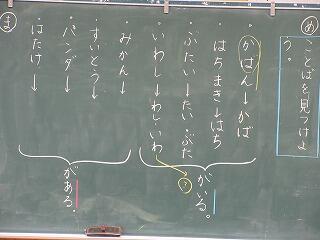 め
ことばを見つけよ
う。
・かばん→かば
・はちまき→はち
・ぶたい→たい、ぶた
・いわし→わし、いわ
?
がいる。
・みかん→
・すいとう→
・パンダ→
・はたけ→
がある。
ま